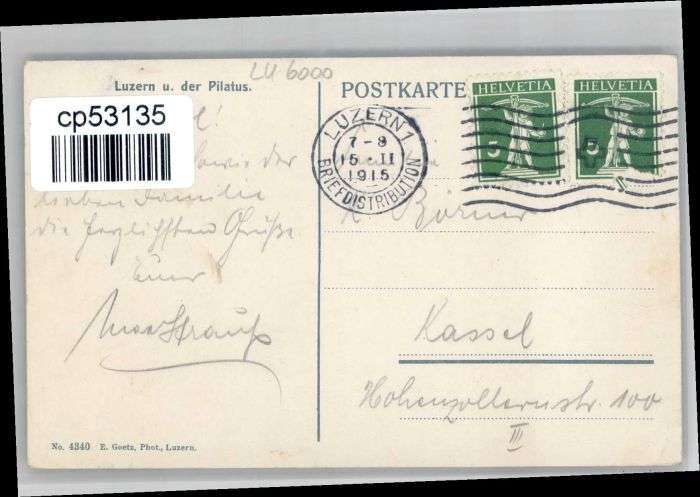 LU 6000
Luzern u. der Pilatus.
cp53135
sowie der
lieben Familie
die herzlichsten Grüße
Euer
Max Strauß
No. 4340 E. Goetz, Phot., Luzern.
POSTKARTE
LUZERN 1
7-8
15·II
1915
BRIEFDISTRIBUTION
HELVETIA
5
HELVETIA
5
Börner
Kassel
Hohenzollernstr. 100
III